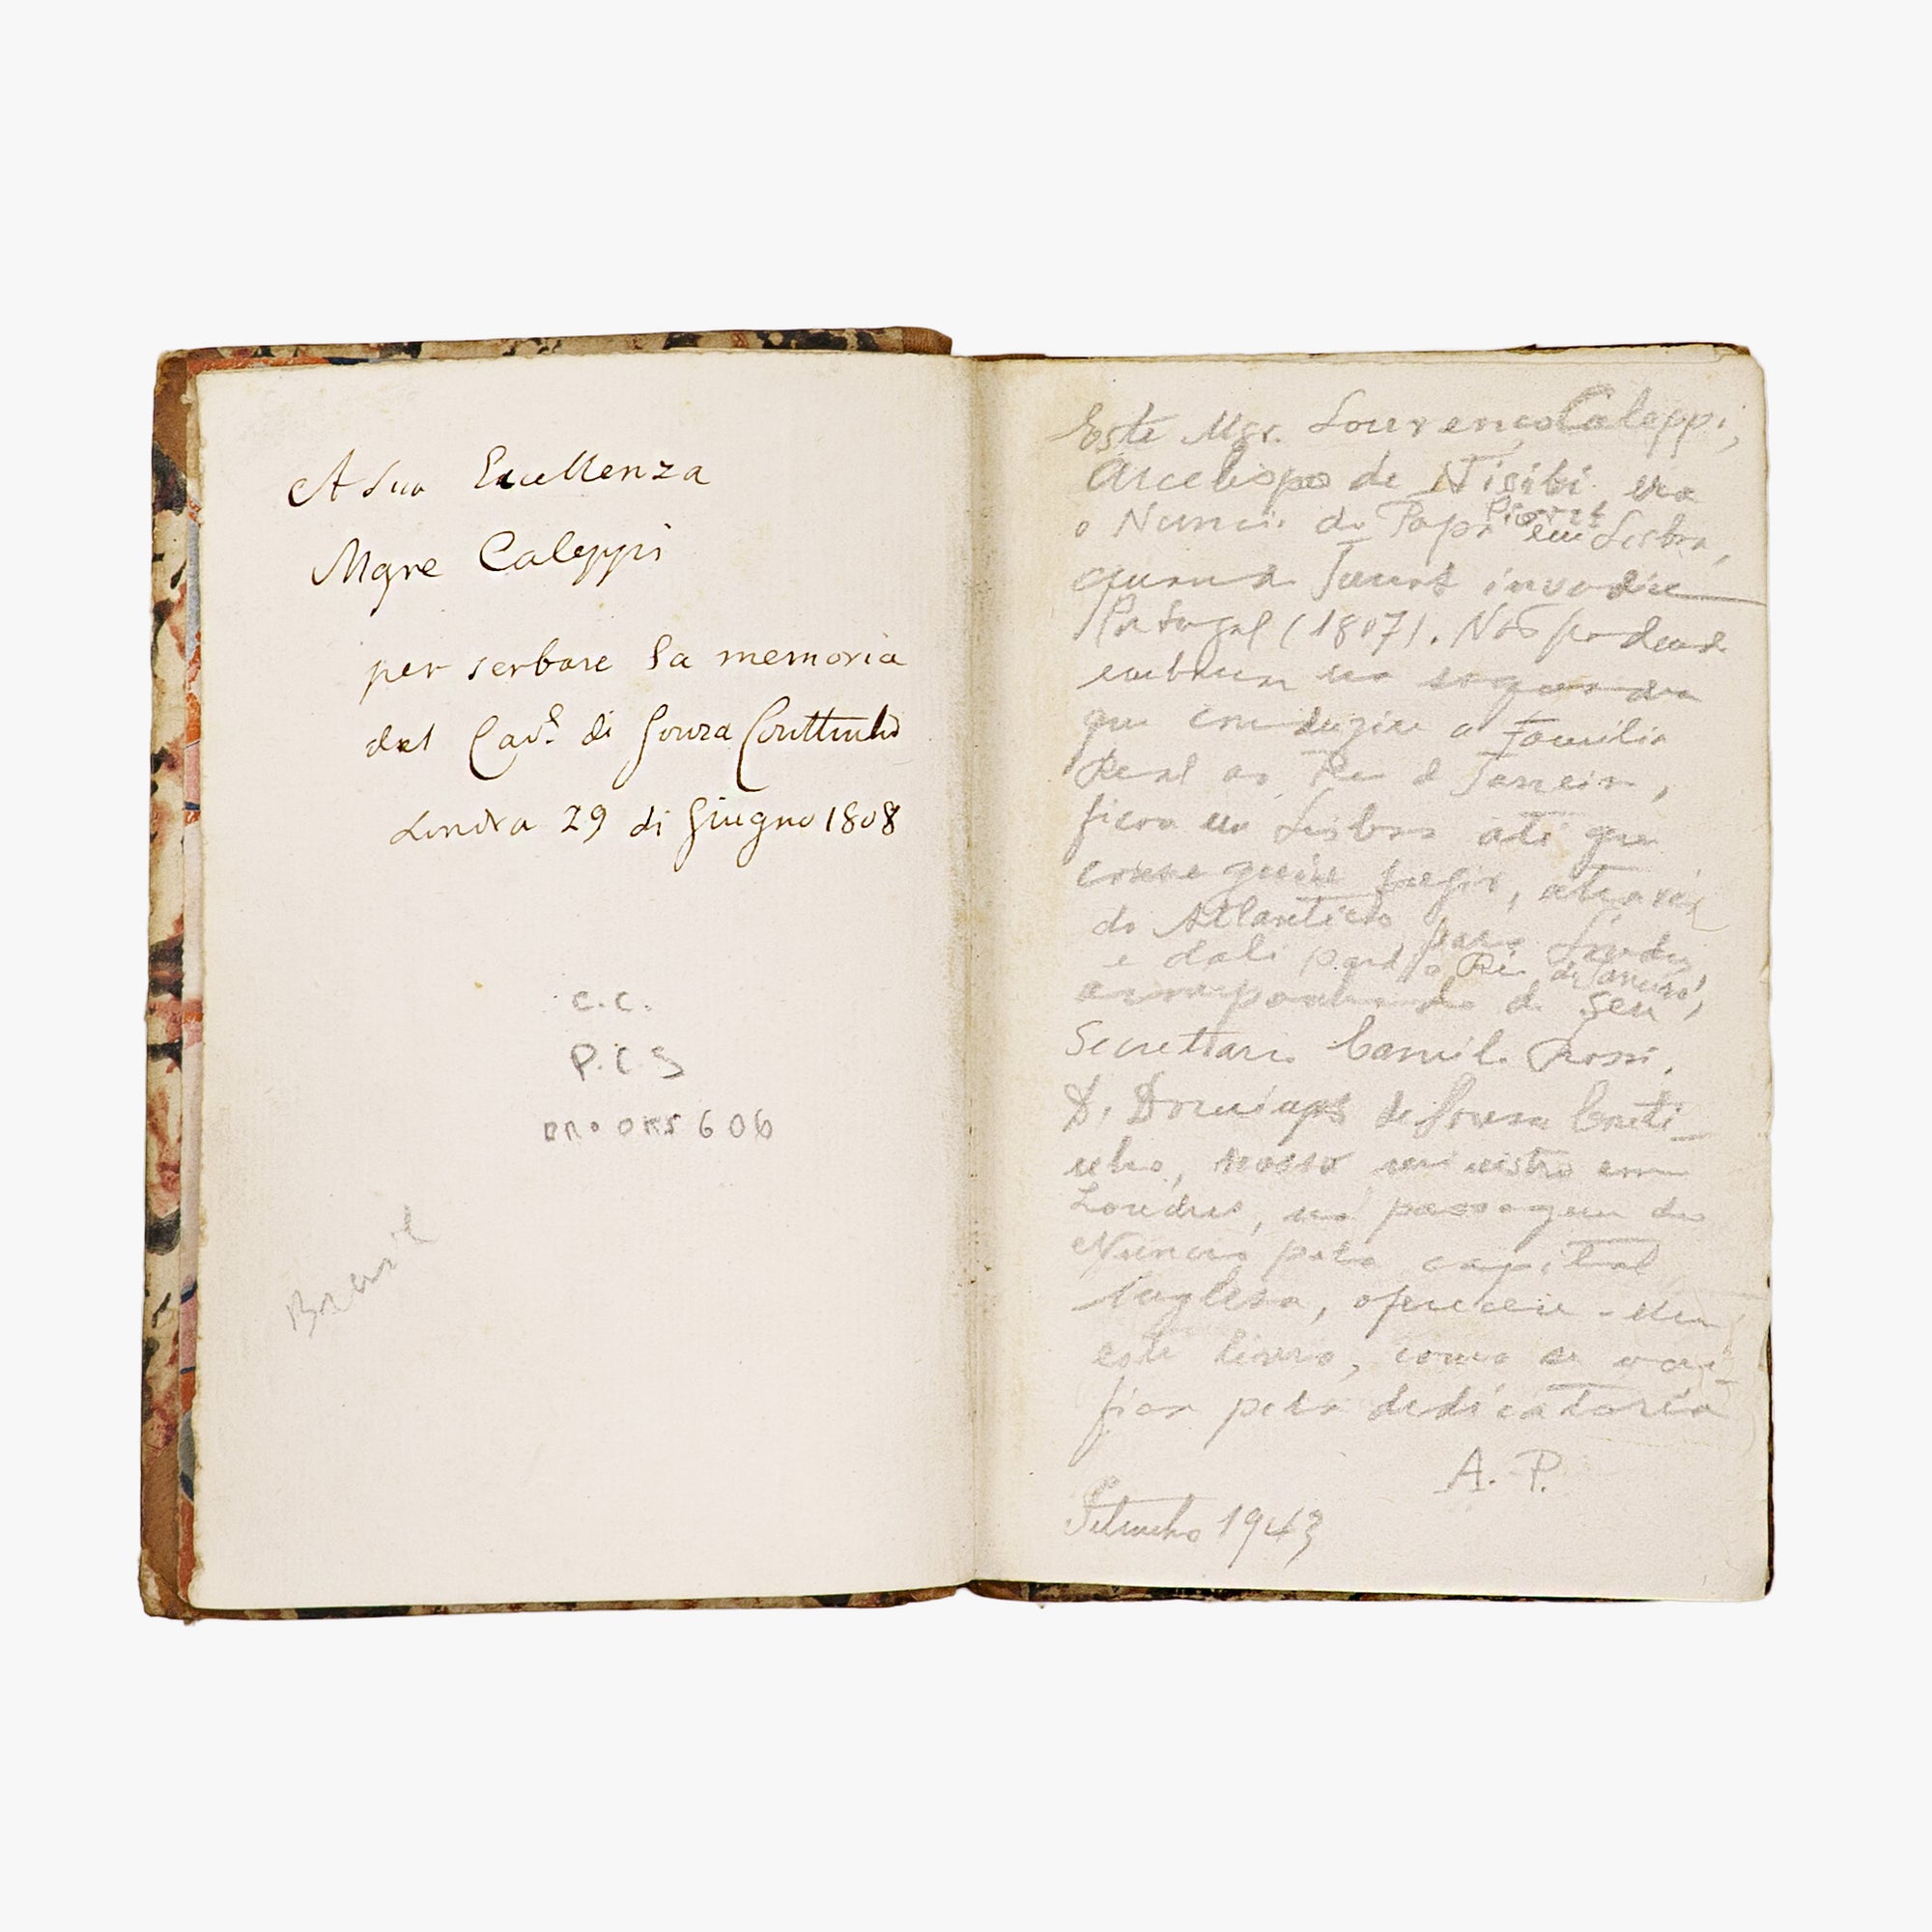 A Sua Eccellenza
Mgre Caleppi
per serbare la memoria
del Cav.e di Souza Couttinho
Londra 29 di Giugno 1808
C.C.
P.C.S
606
Brasil
Este Mgr. Lourenço Caleppi,
Arcebispo de Nisibi, era
o Nuncio do Papa em Lisboa,
quando Junot invadiu
Portugal (1807). Não podendo
embarcar na esquadra
que conduziu a Familia
Real ao Rio de Janeiro,
ficou em Lisboa até que
conseguiu fugir, através
do Atlantico para Londres,
e dali para o Rio de Janeiro,
acompanhado do seu
Secretario Camilo Rossi.
D. Domingos de Sousa Couti-
nho, nosso ministro em
Londres, na passagem do
Nuncio pela capital
inglesa, ofereceu-lhe
este livro, como se veri-
fica pela dedicatoria
A. P.
1943